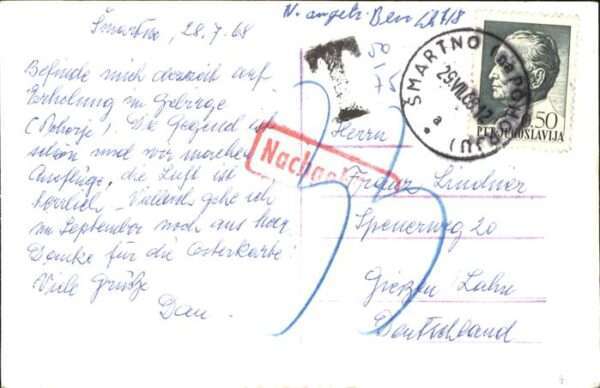 Šmartno, 28.7.68
Befinde mich derzeit auf
Erholung im Gebirge
(Pohorje). Die Gegend ist
schön und wir machen
Ausflüge, die Luft ist
herrlich. Vielleicht gehe ich
im September noch ans Meer
Danke für die Osterkarte!
Viele Grüße
Dan.
T
50
75
ŠMARTNO
29.VII.68-12
a
0.50
PTT JUGOSLAVIJA
Nachgebühr
33
Herrn
Franz Lindner
Speuerweg 20
Gießen/Lahn
Deutschland